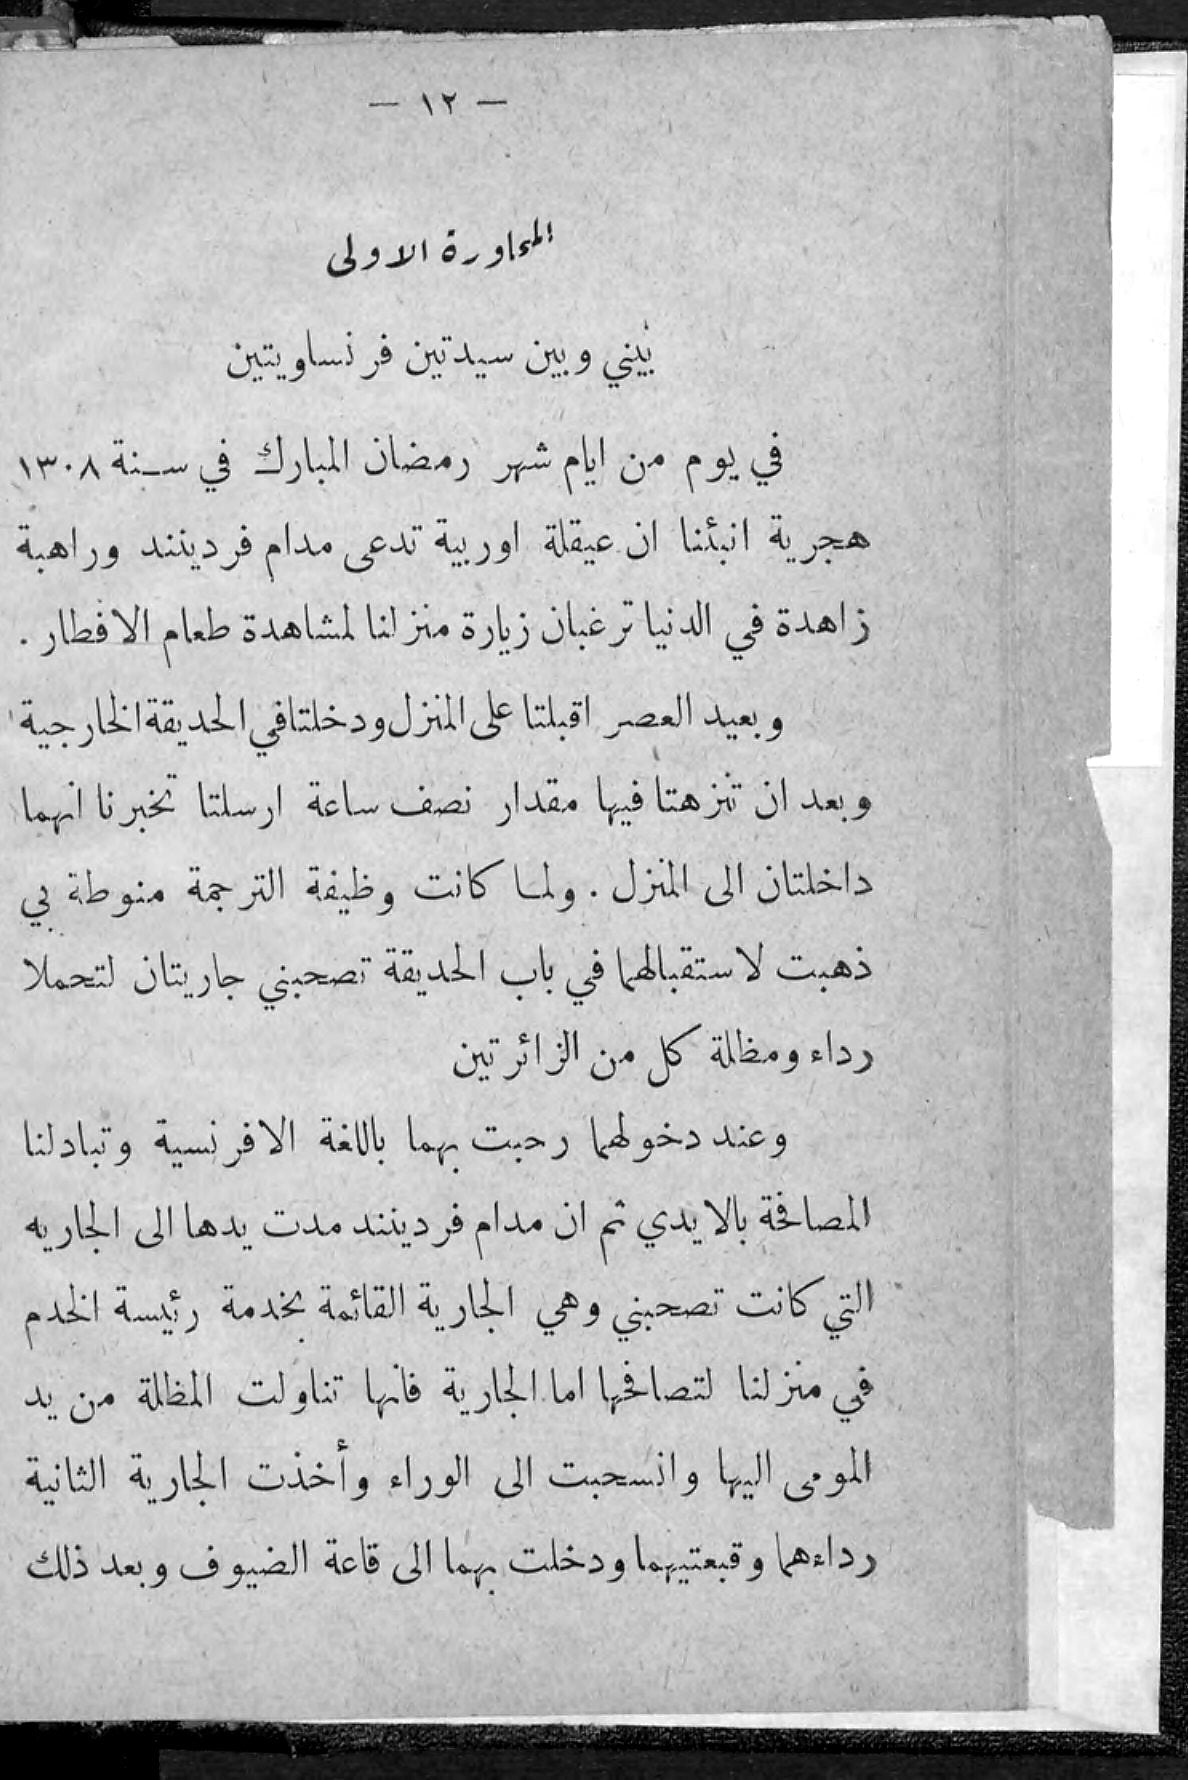 — ١٢ —
المحاورة الاولى
بيني وبين سيدتين فرنساويتين
في يوم من ايام شهر رمضان المبارك في سنة ١٣٠٨
هجرية انبئنا ان عيقلة اوربية تدعى مدام فردينند وراهبة
زاهدة في الدنيا ترغبان زيارة منزلنا لمشاهدة طعام الافطار .
وبعيد العصر اقبلتا على المنزل ودخلتا في الحديقة الخارجية
وبعد ان تنزهتا فيها مقدار نصف ساعة ارسلتا تخبرنا انهما
داخلتان الى المنزل . ولما كانت وظيفة الترجمة منوطة بي
ذهبت لاستقبالهما في باب الحديقة تصحبني جاريتان لتحملا
رداء ومظلة كل من الزائرتين
وعند دخولهما رحبت بهما باللغة الافرنسية وتبادلنا
المصافحة بالايدي ثم ان مدام فردينند مدت يدها الى الجاريه
التي كانت تصحبني وهي الجارية القائمة بخدمة رئيسة الخدم
في منزلنا لتصافحها اما الجارية فانها تناولت المظلة من يد
المومى اليها وانسحبت الى الوراء وأخذت الجارية الثانية
رداءهما وقبعتيهما ودخلت بهما الى قاعة الضيوف وبعد ذلك